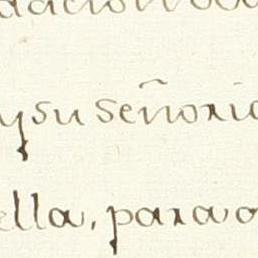 y su señoria
ella, para